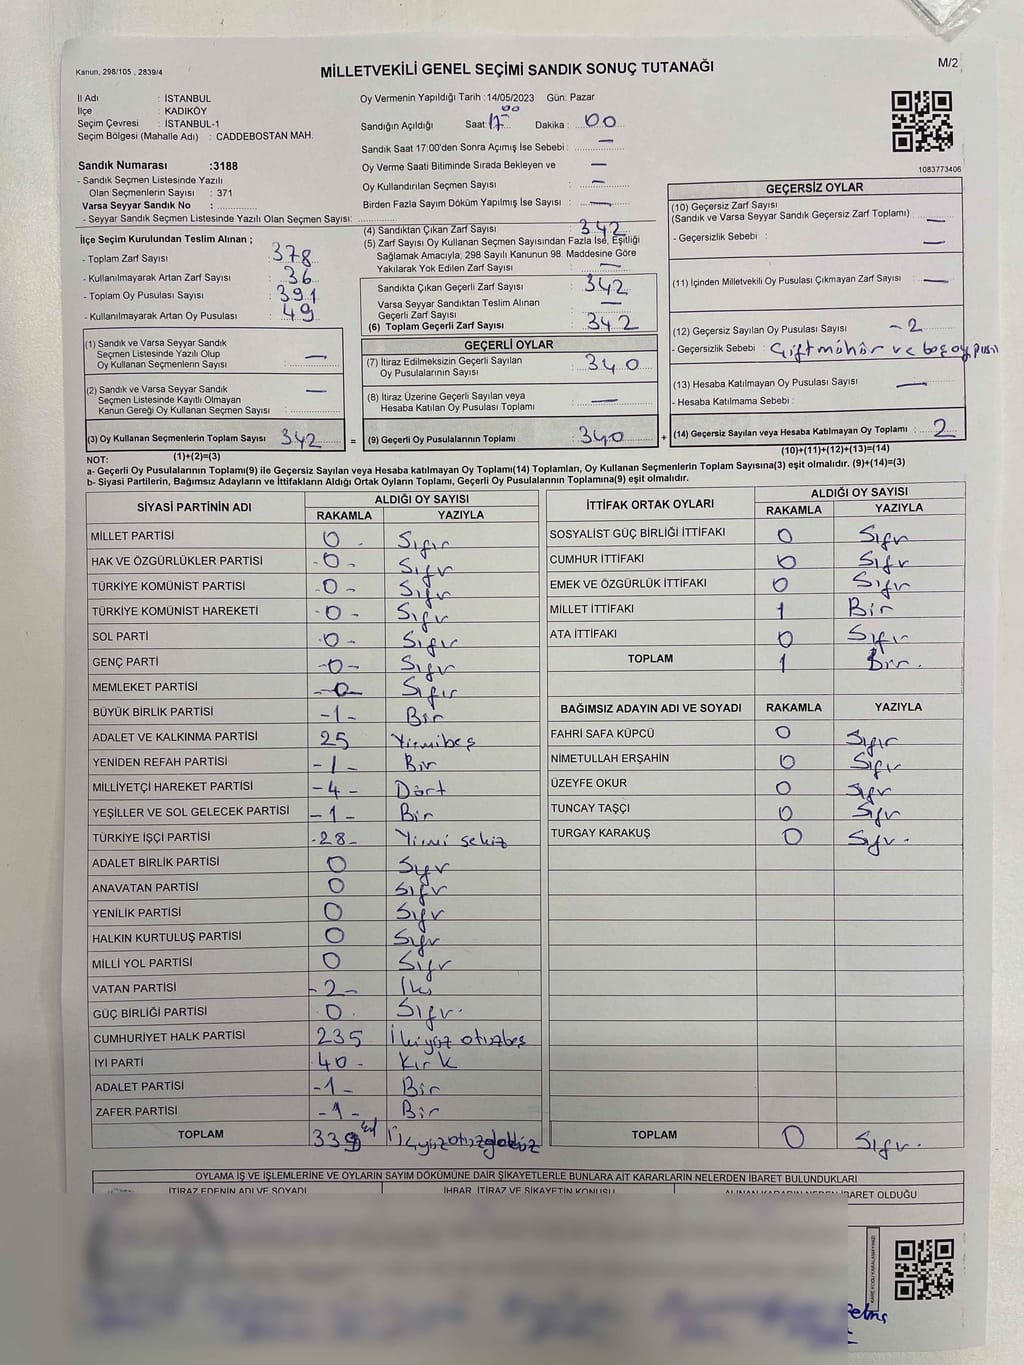 Kanun, 298/105 , 2839/4
MİLLETVEKİLİ GENEL SEÇİMİ SANDIK SONUÇ TUTANAĞI
M/2
İl Adı : İSTANBUL
İlçe : KADIKÖY
Seçim Çevresi : İSTANBUL-1
Seçim Bölgesi (Mahalle Adı) : CADDEBOSTAN MAH.
Sandık Numarası :3188
- Sandık Seçmen Listesinde Yazılı
Olan Seçmenlerin Sayısı : 371
Varsa Seyyar Sandık No :
- Seyyar Sandık Seçmen Listesinde Yazılı Olan Seçmen Sayısı:
Oy Vermenin Yapıldığı Tarih :14/05/2023 Gün: Pazar
Sandığın Açıldığı Saat: 17 00 Dakika : 00
Sandık Saat 17:00'den Sonra Açımış İse Sebebi : —
Oy Verme Saati Bitiminde Sırada Bekleyen ve —
Oy Kullandırılan Seçmen Sayısı : —
Birden Fazla Sayım Döküm Yapılmış İse Sayısı : —
1083773406
İlçe Seçim Kurulundan Teslim Alınan ;
- Toplam Zarf Sayısı : 378
- Kullanılmayarak Artan Zarf Sayısı : 36
- Toplam Oy Pusulası Sayısı : 391
- Kullanılmayarak Artan Oy Pusulası : 49
(1) Sandık ve Varsa Seyyar Sandık
Seçmen Listesinde Yazılı Olup
Oy Kullanan Seçmenlerin Sayısı : —
(2) Sandık ve Varsa Seyyar Sandık
Seçmen Listesinde Kayıtlı Olmayan
Kanun Gereği Oy Kullanan Seçmen Sayısı : —
(3) Oy Kullanan Seçmenlerin Toplam Sayısı 342 =
(1)+(2)=(3)
(4) Sandıktan Çıkan Zarf Sayısı : 342
(5) Zarf Sayısı Oy Kullanan Seçmen Sayısından Fazla İse, Eşitliği
Sağlamak Amacıyla; 298 Sayılı Kanunun 98. Maddesine Göre
Yakılarak Yok Edilen Zarf Sayısı : —
Sandıkta Çıkan Geçerli Zarf Sayısı : 342
Varsa Seyyar Sandıktan Teslim Alınan
Geçerli Zarf Sayısı : —
(6) Toplam Geçerli Zarf Sayısı : 342
GEÇERLİ OYLAR
(7) İtiraz Edilmeksizin Geçerli Sayılan
Oy Pusulalarının Sayısı : 340
(8) İtiraz Üzerine Geçerli Sayılan veya
Hesaba Katılan Oy Pusulası Toplamı : —
(9) Geçerli Oy Pusulalarının Toplamı : 340 +
GEÇERSİZ OYLAR
(10) Geçersiz Zarf Sayısı
(Sandık ve Varsa Seyyar Sandık Geçersiz Zarf Toplamı) —
- Geçersizlik Sebebi : —
(11) İçinden Milletvekili Oy Pusulası Çıkmayan Zarf Sayısı : —
(12) Geçersiz Sayılan Oy Pusulası Sayısı : -2
- Geçersizlik Sebebi : Çift mühür ve boş oy pusul
(13) Hesaba Katılmayan Oy Pusulası Sayısı : —
- Hesaba Katılmama Sebebi :
(14) Geçersiz Sayılan veya Hesaba Katılmayan Oy Toplamı : 2
(10)+(11)+(12)+(13)=(14)
NOT:
a- Geçerli Oy Pusulalarının Toplamı(9) ile Geçersiz Sayılan veya Hesaba katılmayan Oy Toplamı(14) Toplamları, Oy Kullanan Seçmenlerin Toplam Sayısına(3) eşit olmalıdır. (9)+(14)=(3)
b- Siyasi Partilerin, Bağımsız Adayların ve İttifakların Aldığı Ortak Oyların Toplamı, Geçerli Oy Pusulalarının Toplamına(9) eşit olmalıdır.
SİYASİ PARTİNİN ADI ALDIĞI OY SAYISI
RAKAMLA YAZIYLA
MİLLET PARTİSİ 0 Sıfır
HAK VE ÖZGÜRLÜKLER PARTİSİ -0- Sıfır
TÜRKİYE KOMÜNİST PARTİSİ -0- Sıfır
TÜRKİYE KOMÜNİST HAREKETİ -0- Sıfır
SOL PARTİ -0- Sıfır
GENÇ PARTİ -0- Sıfır
MEMLEKET PARTİSİ -0- Sıfır
BÜYÜK BİRLİK PARTİSİ -1- Bir
ADALET VE KALKINMA PARTİSİ 25 Yirmibeş
YENİDEN REFAH PARTİSİ -1- Bir
MİLLİYETÇİ HAREKET PARTİSİ -4- Dört
YEŞİLLER VE SOL GELECEK PARTİSİ -1- Bir
TÜRKİYE İŞÇİ PARTİSİ -28- Yirmi sekiz
ADALET BİRLİK PARTİSİ 0 Sıfır
ANAVATAN PARTİSİ 0 Sıfır
YENİLİK PARTİSİ 0 Sıfır
HALKIN KURTULUŞ PARTİSİ 0 Sıfır
MİLLİ YOL PARTİSİ 0 Sıfır
VATAN PARTİSİ -2- İki
GÜÇ BİRLİĞİ PARTİSİ 0. Sıfır.
CUMHURİYET HALK PARTİSİ 235 İkiyüz otuzbeş
İYİ PARTİ 40- Kırk
ADALET PARTİSİ -1- Bir
ZAFER PARTİSİ -1- Bir
TOPLAM 339 Üçyüzotuzdokuz
İTTİFAK ORTAK OYLARI ALDIĞI OY SAYISI
RAKAMLA YAZIYLA
SOSYALİST GÜÇ BİRLİĞİ İTTİFAKI 0 Sıfır
CUMHUR İTTİFAKI 0 Sıfır
EMEK VE ÖZGÜRLÜK İTTİFAKI 0 Sıfır
MİLLET İTTİFAKI 1 Bir
ATA İTTİFAKI 0 Sıfır
TOPLAM 1 Bir.
BAĞIMSIZ ADAYIN ADI VE SOYADI RAKAMLA YAZIYLA
FAHRİ SAFA KÜPCÜ 0 Sıfır
NİMETULLAH ERŞAHİN 0 Sıfır
ÜZEYFE OKUR 0 Sıfır
TUNCAY TAŞÇI 0 Sıfır
TURGAY KARAKUŞ 0 Sıfır.
TOPLAM 0 Sıfır.
OYLAMA İŞ VE İŞLEMLERİNE VE OYLARIN SAYIM DÖKÜMÜNE DAİR ŞİKAYETLERLE BUNLARA AİT KARARLARIN NELERDEN İBARET BULUNDUKLARI
İTİRAZ EDENİN ADI VE SOYADI İHBAR, İTİRAZ VE ŞİKAYETİN KONUSU ALINAN KARARIN NEDEN İBARET OLDUĞU